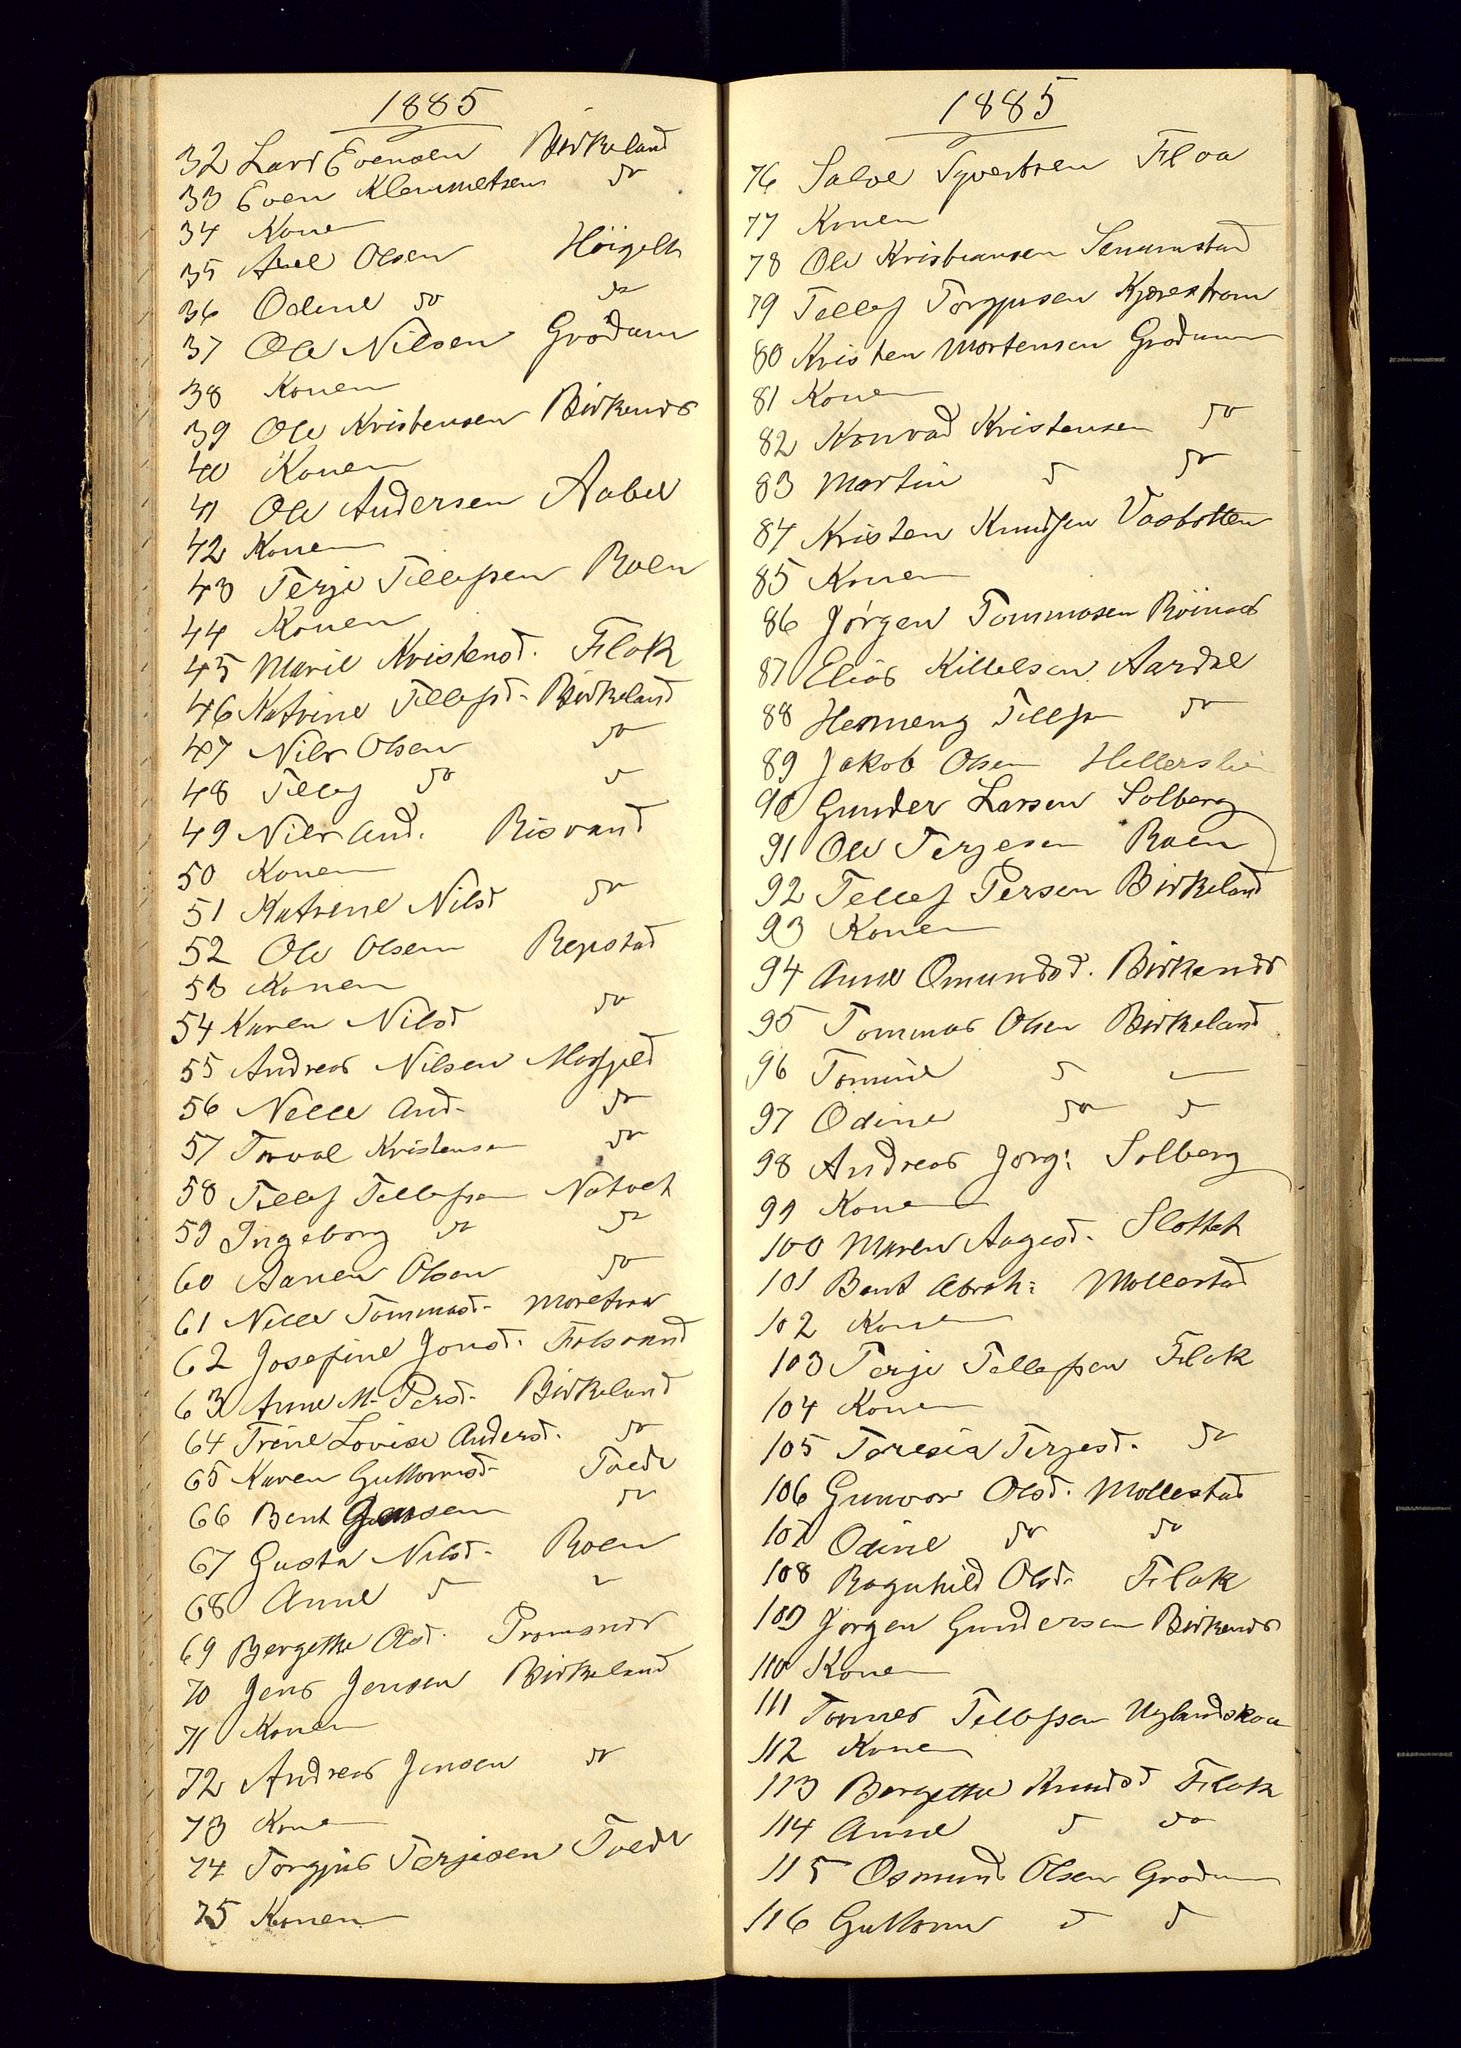 1885
32 Lars Evensen Birkeland
33 Even Klemmetsen do
34 Konen
35 Axel Olsen Höigelt
36 Odine do do
37 Ole Nilsen Grödum
38 Konen
39 Ole Kristensen Birkenes
40 Konen
41 Ole Andersen Aabel
42 Konen
43 Terje Tellefsen Roen
44 Konen
45 Marie Kristensd. Flak
46 Katrine Tellefsd. Birkeland
47 Nils Olsen do
48 Tellef do do
49 Nils And. Risvand
50 Konen
51 Katrine Nilsd do
52 Ole Olsen Repstad
53 Konen
54 Karen Nilsd do
55 Andreas Nilsen Mosfjeld
56 Nelle And. do
57 Torval Kristensen do
58 Tellef Tellefsen Natvet
59 Ingeborg do do
60 Aanen Olsen do
61 Nelle Tommasd.
62 Josefine Jonsd. Folsvand
63 Anne M. Persd. Birkeland
64 Trine Lovise Andersd. do
65 Karen Guttormsd. Tvede
66 Bent Jensen do
67 Gusta Nilsd. Roen
68 Anne d
69 Bergethe Olsd. Tromsnes
70 Jens Jensen Birkeland
71 Konen
72 Andreas Jensen do
73 Konen
74 Torgjus Terjesen Tvede
75 Konen
1885
76 Salve Syvertsen Floa
77 Konen
78 Ole Kristiansen Senumstad
79 Tellef Torgjusen Kjærestrom
80 Kristen Mortensen Grødum
81 Konen
82 Konrad Kristensen do
83 Martin d do
84 Kristen Knudsen Vasbotten
85 Konen
86 Jørgen Tommasen Röinaas
87 Elias Killelsen Aardal
88 Hermeng Tellefsen do
89 Jakob Olsen Hellerslia
90 Gunder Larsen Solberg
91 Ole Terjesen Roen
92 Tellef Persen Birkeland
93 Konen
94 Anne Omundsd. Birkenes
95 Tommas Olsen Birkeland
96 Tomine d
97 Odine do d
98 Andreas Jørg: Solberg
99 Konen
100 Maren Aagesd. Slottet
101 Bent Abrah: Mollestad
102 Konen
103 Terje Tellefsen Flak
104 Konen
105 Teresia Terjesd. do
106 Gunvor Olsd. Mollestad
107 Odine do do
108 Ragnhild Olsd. Flak
109 Jørgen Gundersen Birkenes
110 Konen
111 Tonnes Tellefsen
112 Konen
113 Bergethe Knudsd Flak
114 Anne d do
115 Osmund Olsen Grødum
116 Guttorm d d